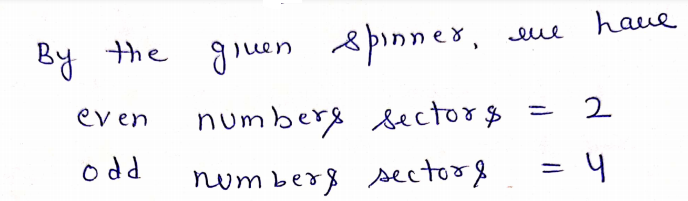 By the given spinner, we have
even numbers sectors = 2
odd numbers sectors = 4